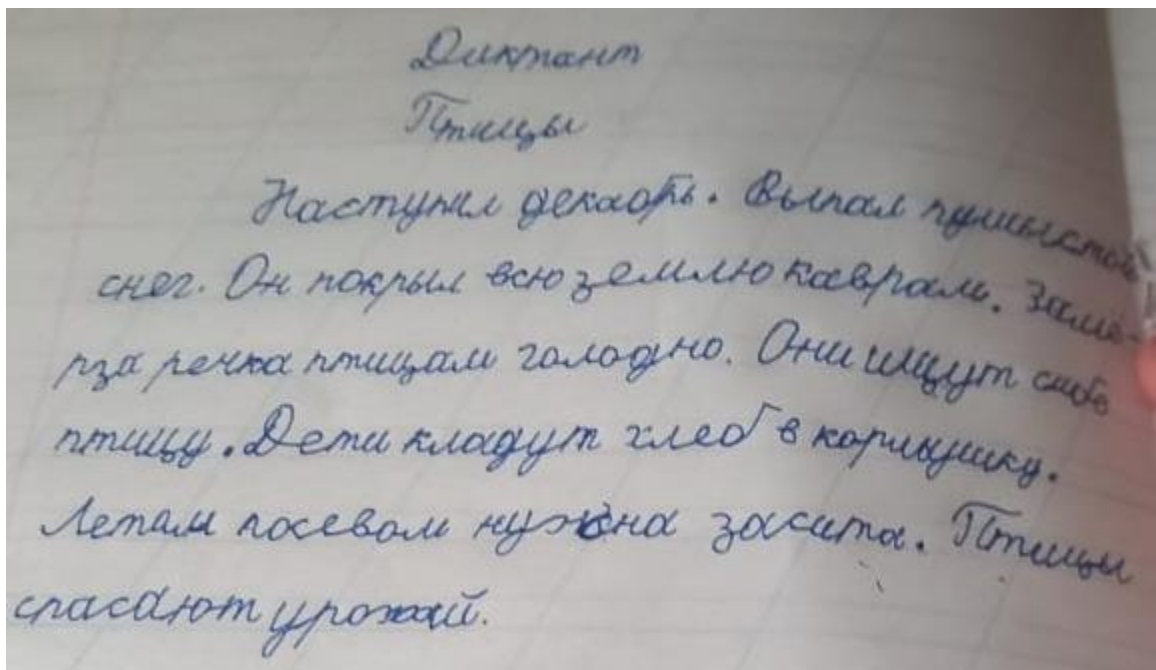 Диктант
Птицы
Наступил декабрь. Выпал пушыстой
снег. Он покрыл всю землю каврам. Замё-
рза речка птицам голодно. Они ищут
птицу. Дети кладут хлеб в кормушку.
Летам посевом нужна засита. Птицы
спасают урожай.